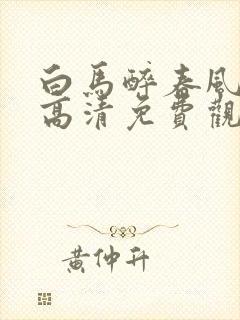 白馬醉春風
高清免費觀
黃仲升